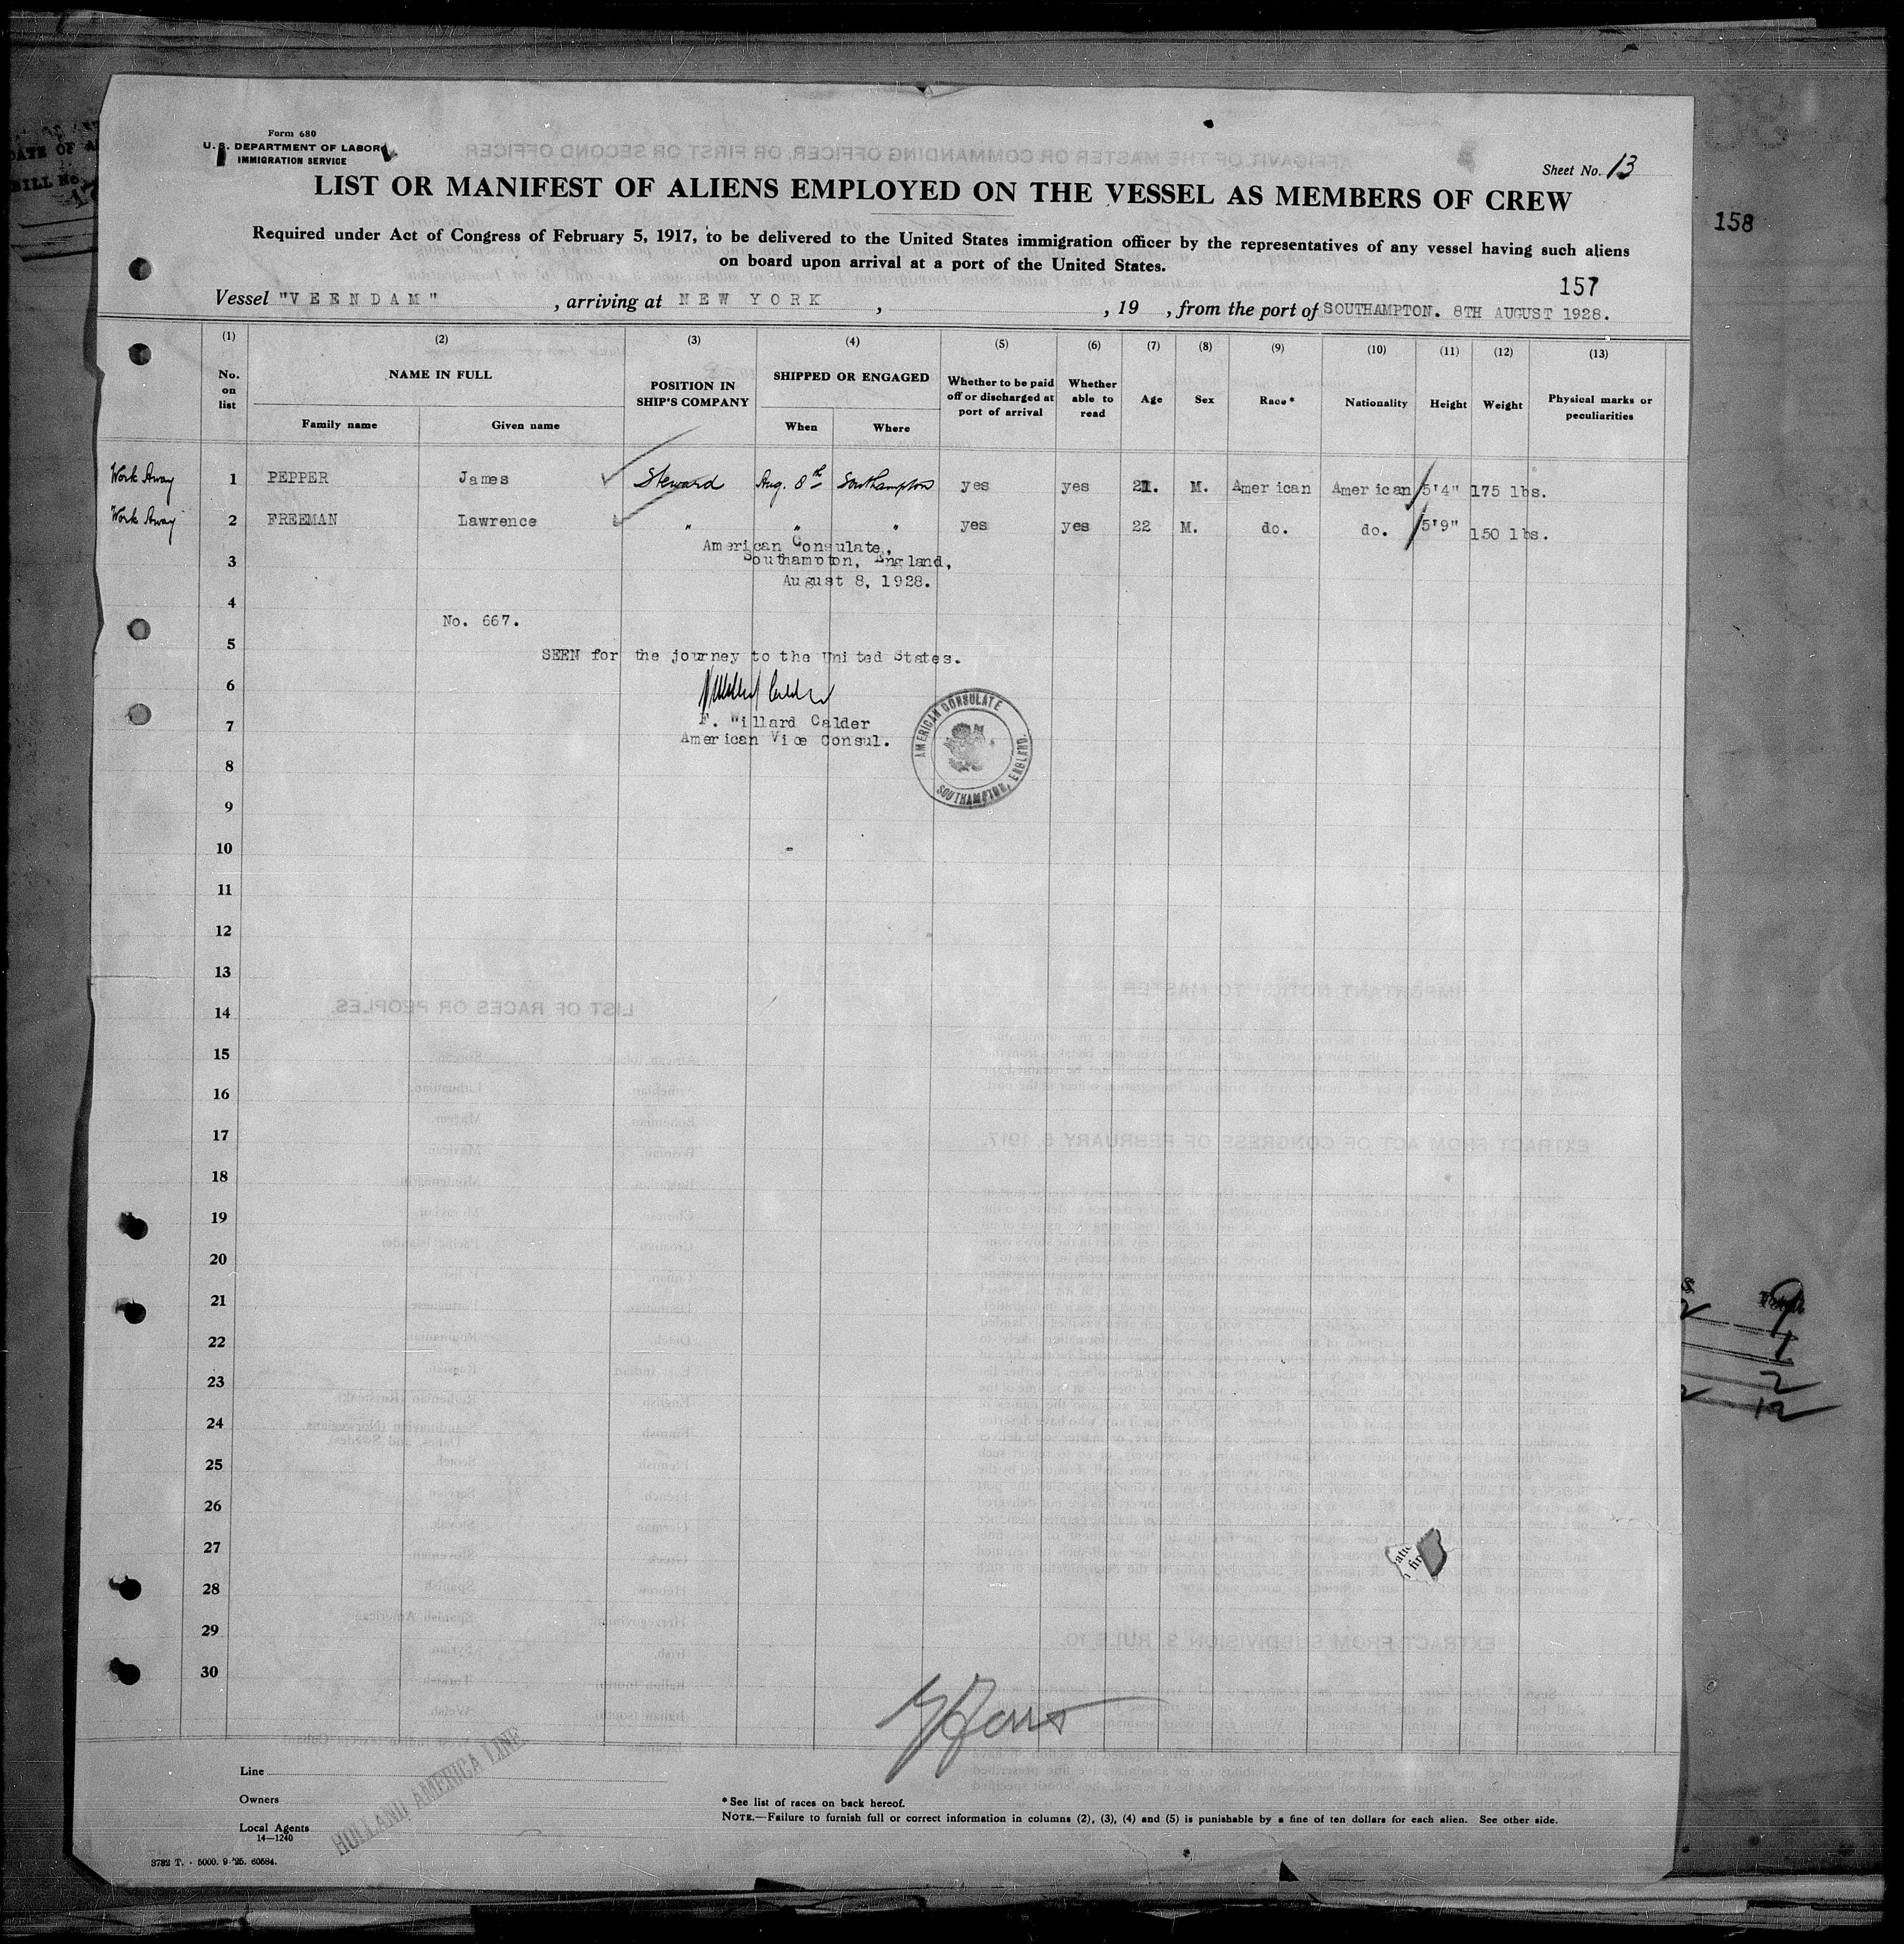 Form 680
U. S. DEPARTMENT OF LABOR
IMMIGRATION SERVICE
Sheet No. 13
LIST OR MANIFEST OF ALIENS EMPLOYED ON THE VESSEL AS MEMBERS OF CREW
158
Required under Act of Congress of February 5, 1917, to be delivered to the United States immigration officer by the representatives of any vessel having such aliens
on board upon arrival at a port of the United States.
157
Vessel "VEENDAM", arriving at NEW YORK, , 19 , from the port of SOUTHAMPTON. 8TH AUGUST 1928.
(1) (2) (3) (4) (5) (6) (7) (8) (9) (10) (11) (12) (13)
No. on list NAME IN FULL POSITION IN SHIP'S COMPANY SHIPPED OR ENGAGED Whether to be paid off or discharged at port of arrival Whether able to read Age Sex Race* Nationality Height Weight Physical marks or peculiarities
Family name Given name When Where
Work Away 1 PEPPER James Steward Aug. 8th Southampton yes yes 21. M. American American 5'4" 175 lbs.
Work Away 2 FREEMAN Lawrence " " " yes yes 22 M. do. do. 5'9" 150 lbs.
American Consulate,
3 Southampton, England,
August 8, 1928.
4
No. 667.
5
SEEN for the journey to the United States.
6
F. Willard Calder
7
American Vice Consul.
AMERICAN CONSULATE
SOUTHAMPTON, ENGLAND.
8
9
10
11
12
13
14
15
16
17
18
19
20
21
22
23
24
25
26
27
28
29
30
Line
Owners
Local Agents
14—1240
HOLLAND AMERICA LINE
* See list of races on back hereof.
NOTE.—Failure to furnish full or correct information in columns (2), (3), (4) and (5) is punishable by a fine of ten dollars for each alien. See other side.
3782 T. - 5000. 9-'25. 60584.